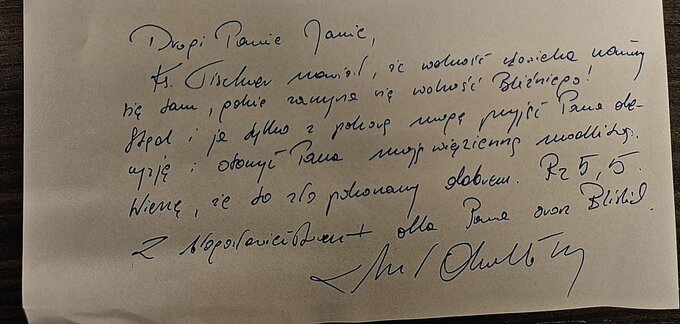 Drogi Panie Janie,
Ks. Tischner mawiał, że wolność człowieka kończy
się tam, gdzie zaczyna się wolność Bliźniego!
Stąd i ja tylko z pokorą mogę przyjąć Pana de-
cyzję i otoczyć Pana moją więzienną modlitwą.
Wierzę, że to zło pokonamy dobrem. Rz 5,5.
Z błogosławieństwem + dla Pana oraz Bliskich.